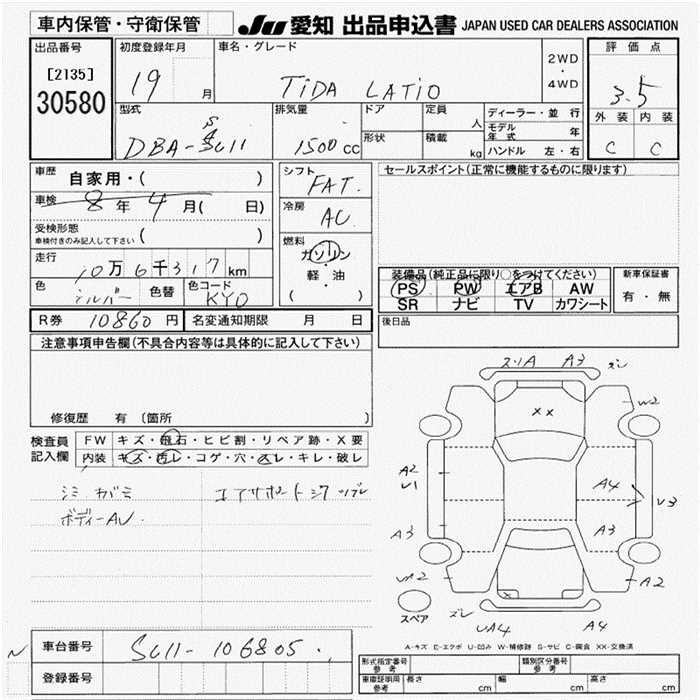 車内保管・守衛保管
JU 愛知 出品申込書 JAPAN USED CAR DEALERS ASSOCIATION
出品番号
[2135]
30580
初度登録年月
19 月
車名・グレード
TIDA LATIO
2WD
・
4WD
評価点
3.5
外装 内装
C C
型式
DBA-SC11
排気量
1500 cc
ドア
形状
定員
人
積載
kg
ディーラー・並行
モデル年式 年
ハンドル 左・右
車歴
自家用・( )
車検
8年 4月( 日)
受検形態
車検付きのみ記入して下さい ( )
走行
10万6千317km
色
シルバー
色替
色コード
KY0
シフト
FAT.
冷房
AC
燃料
ガソリン
・
軽・油
( )
セールスポイント(正常に機能するものに限ります)
装備品(純正品に限り○をつけてください)
PS PW エアB AW
SR ナビ TV カワシート
新車保証書
有・無
後日品
R券 10860 円
名変通知期限 月 日
注意事項申告欄(不具合内容等は具体的に記入して下さい)
修復歴 有 〔箇所 〕
検査員
記入欄
FW キズ・飛石・ヒビ割・リペア跡・X要
内装 キズ・汚レ・コゲ・穴・スレ・キレ・破レ
ボディーAU
ズレ
A3
XX
W2
A2
U1
A4
U3
A3
A3
A2
スペア
ズレ
UA4
A4
A-キズ E-エクボ U-凹み W-補修跡 S-サビ C-腐食 XX-交換済
車台番号
SC11-106805
登録番号
型式指定番号
参考
類別区分番号
参考
車庫証明用
参考
長さ cm
幅 cm
高さ cm